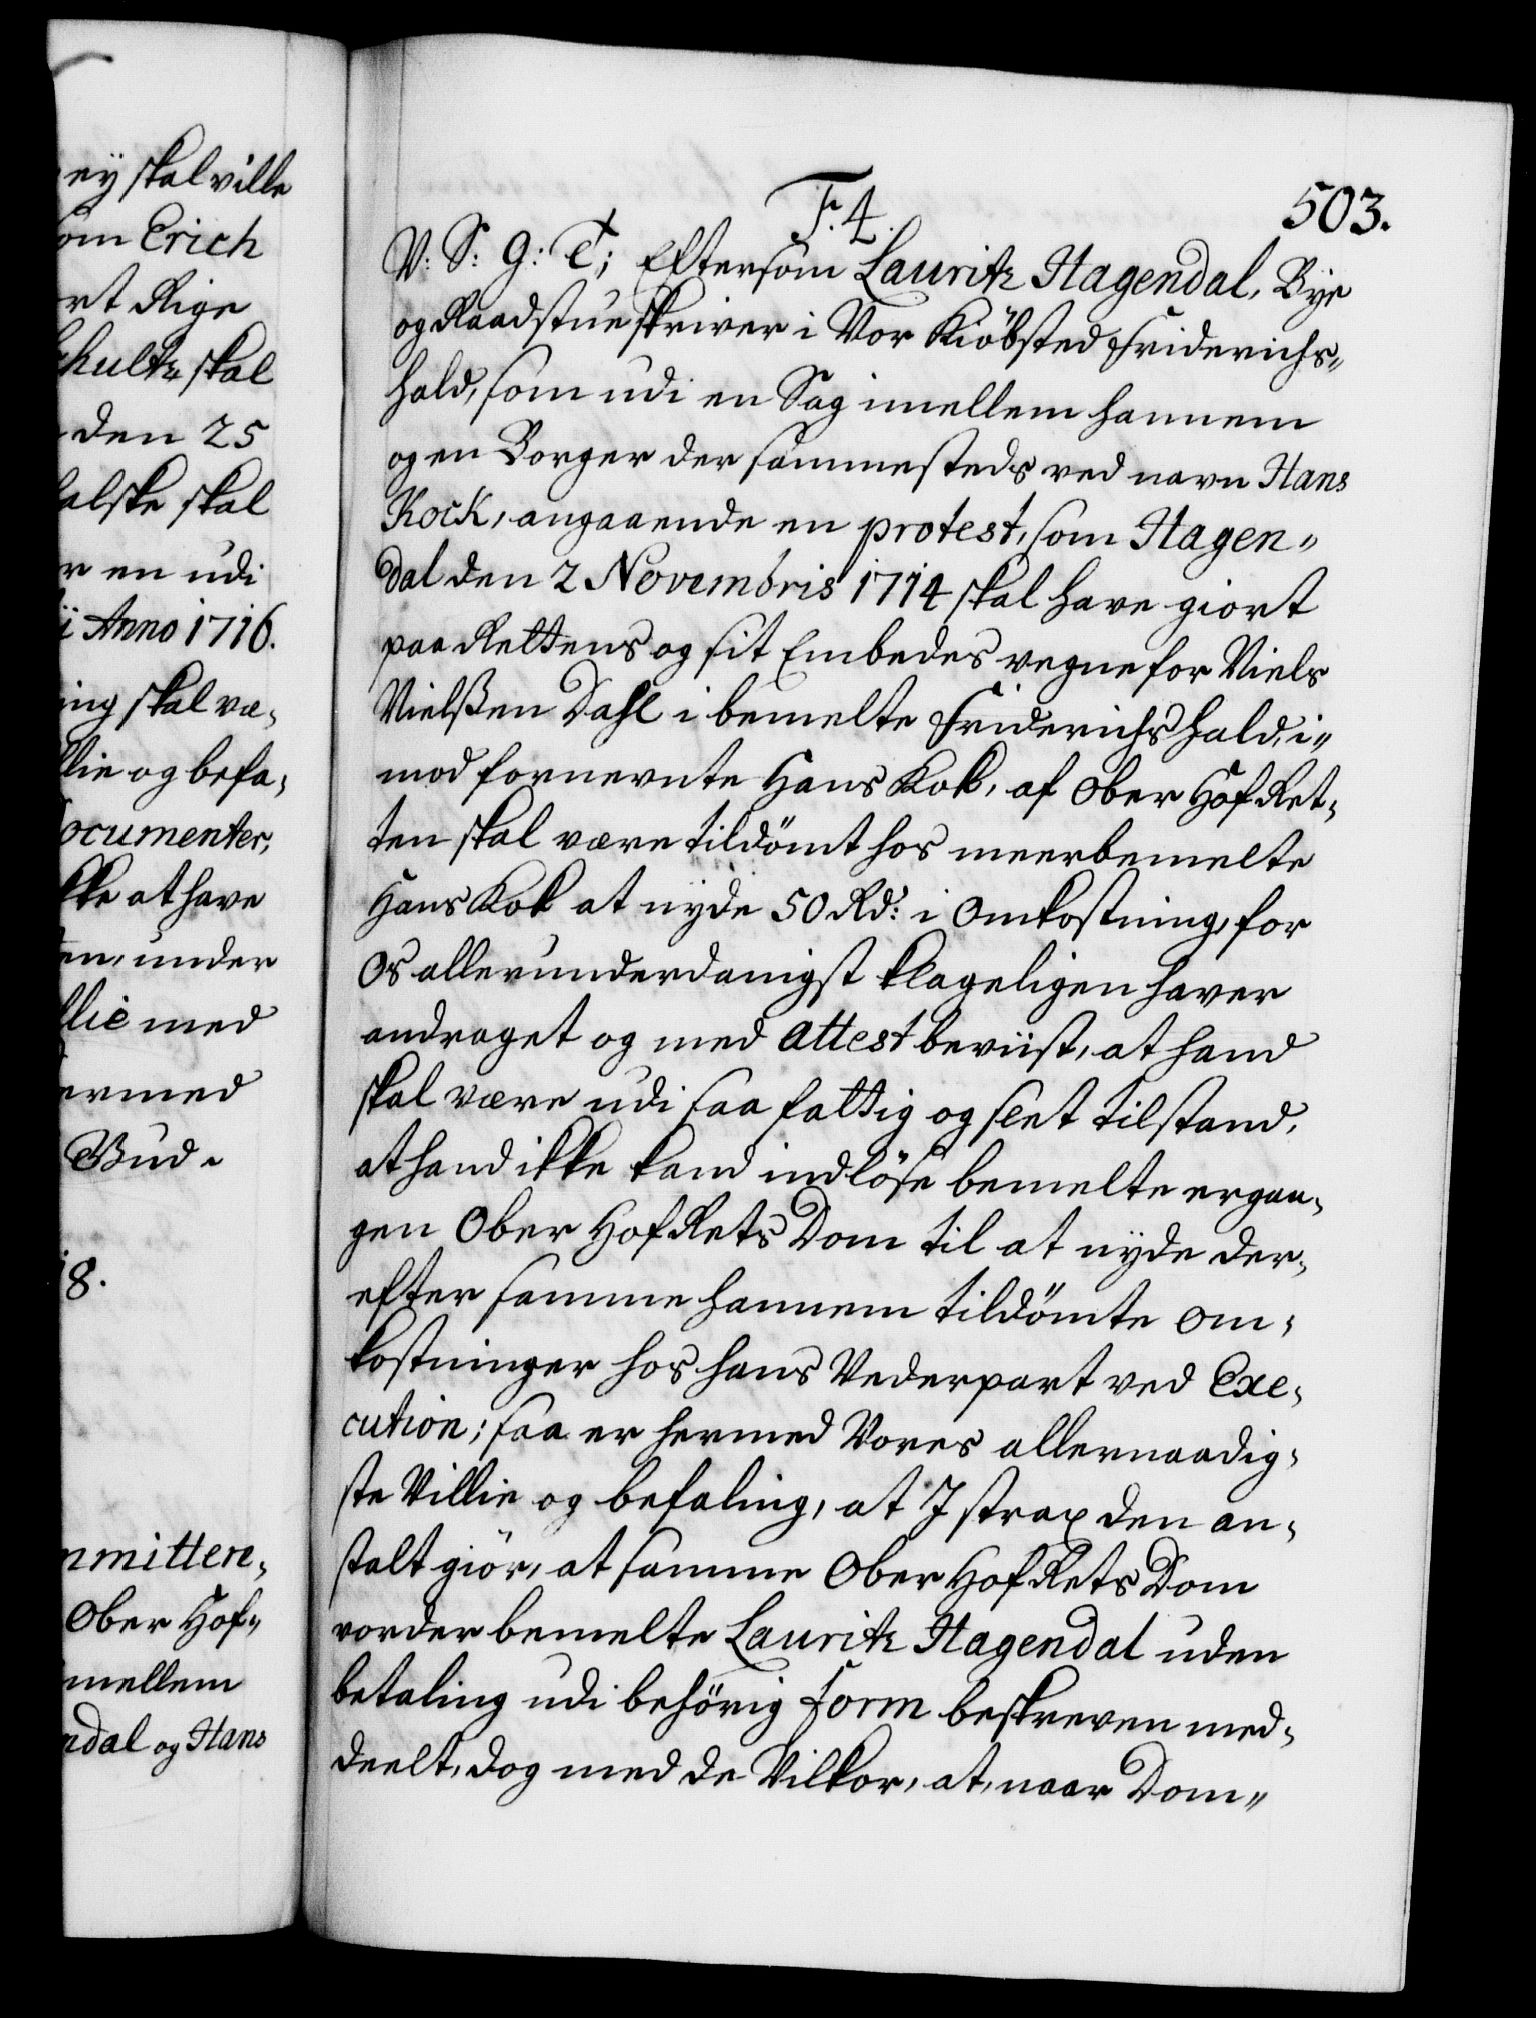 ey skal ville
om Erich
rt Rige
hultz skal
den 25
alske skal
r en udi
ii Anno 1716.
ing skal væ-
llie og befa-
ocumenter,
kke at have
en, under
llie med
ermed
Bud.
8.
mmittere-
Ober Hof-
mellem
ndal og Hans
F. 4.
503.
V: S: G: T; Eftersom Lauritz Hagendal, Bye
og Raadstueskriver i Vor Kiöbsted Friderichs-
hald, som udi en Sag imellem hannem
og en Borger der sammesteds ved navn Hans
Kock, angaaende en protest, som Hagen-
dal den 2 Novembris 1714 skal have giort
paa Rettens og sit Embedes vegne for Niels
Nielßen Dahl i bemelte Friderichshald, i-
mod fornevnte Hans Kok, af Ober HofRet-
ten skal være tildömt hos meerbemelte
Hans Kok at nyde 50 Rd: i Omkostning, for
Os allerunderdanigst klageligen haver
andraget og med attest beviist, at hand
skal være udi saa fattig og slet tilstand,
at hand ikke kand indlöse bemelte ergan-
gen Ober HofRets Dom til at nyde der-
efter samme hannem tildömte Om-
kostninger hos hans Vederpart ved Exe-
cution; saa er hermed Vores allernaadig-
ste Villie og befaling, at I strax den an-
stalt giör, at samme Ober HofRets Dom
vorder bemelte Lauritz Hagendal uden
betaling udi behörig form beskreven med-
deelt, dog med de Vilkor, at, naar Dom-